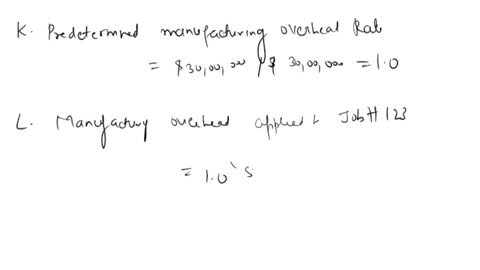 K. Predetermined manufacturing overhead Rate
= $30,00,000 / $ 30,00,000 = 1.0
L. Manufactury overhead applied to Job # 123
= 1.0 s